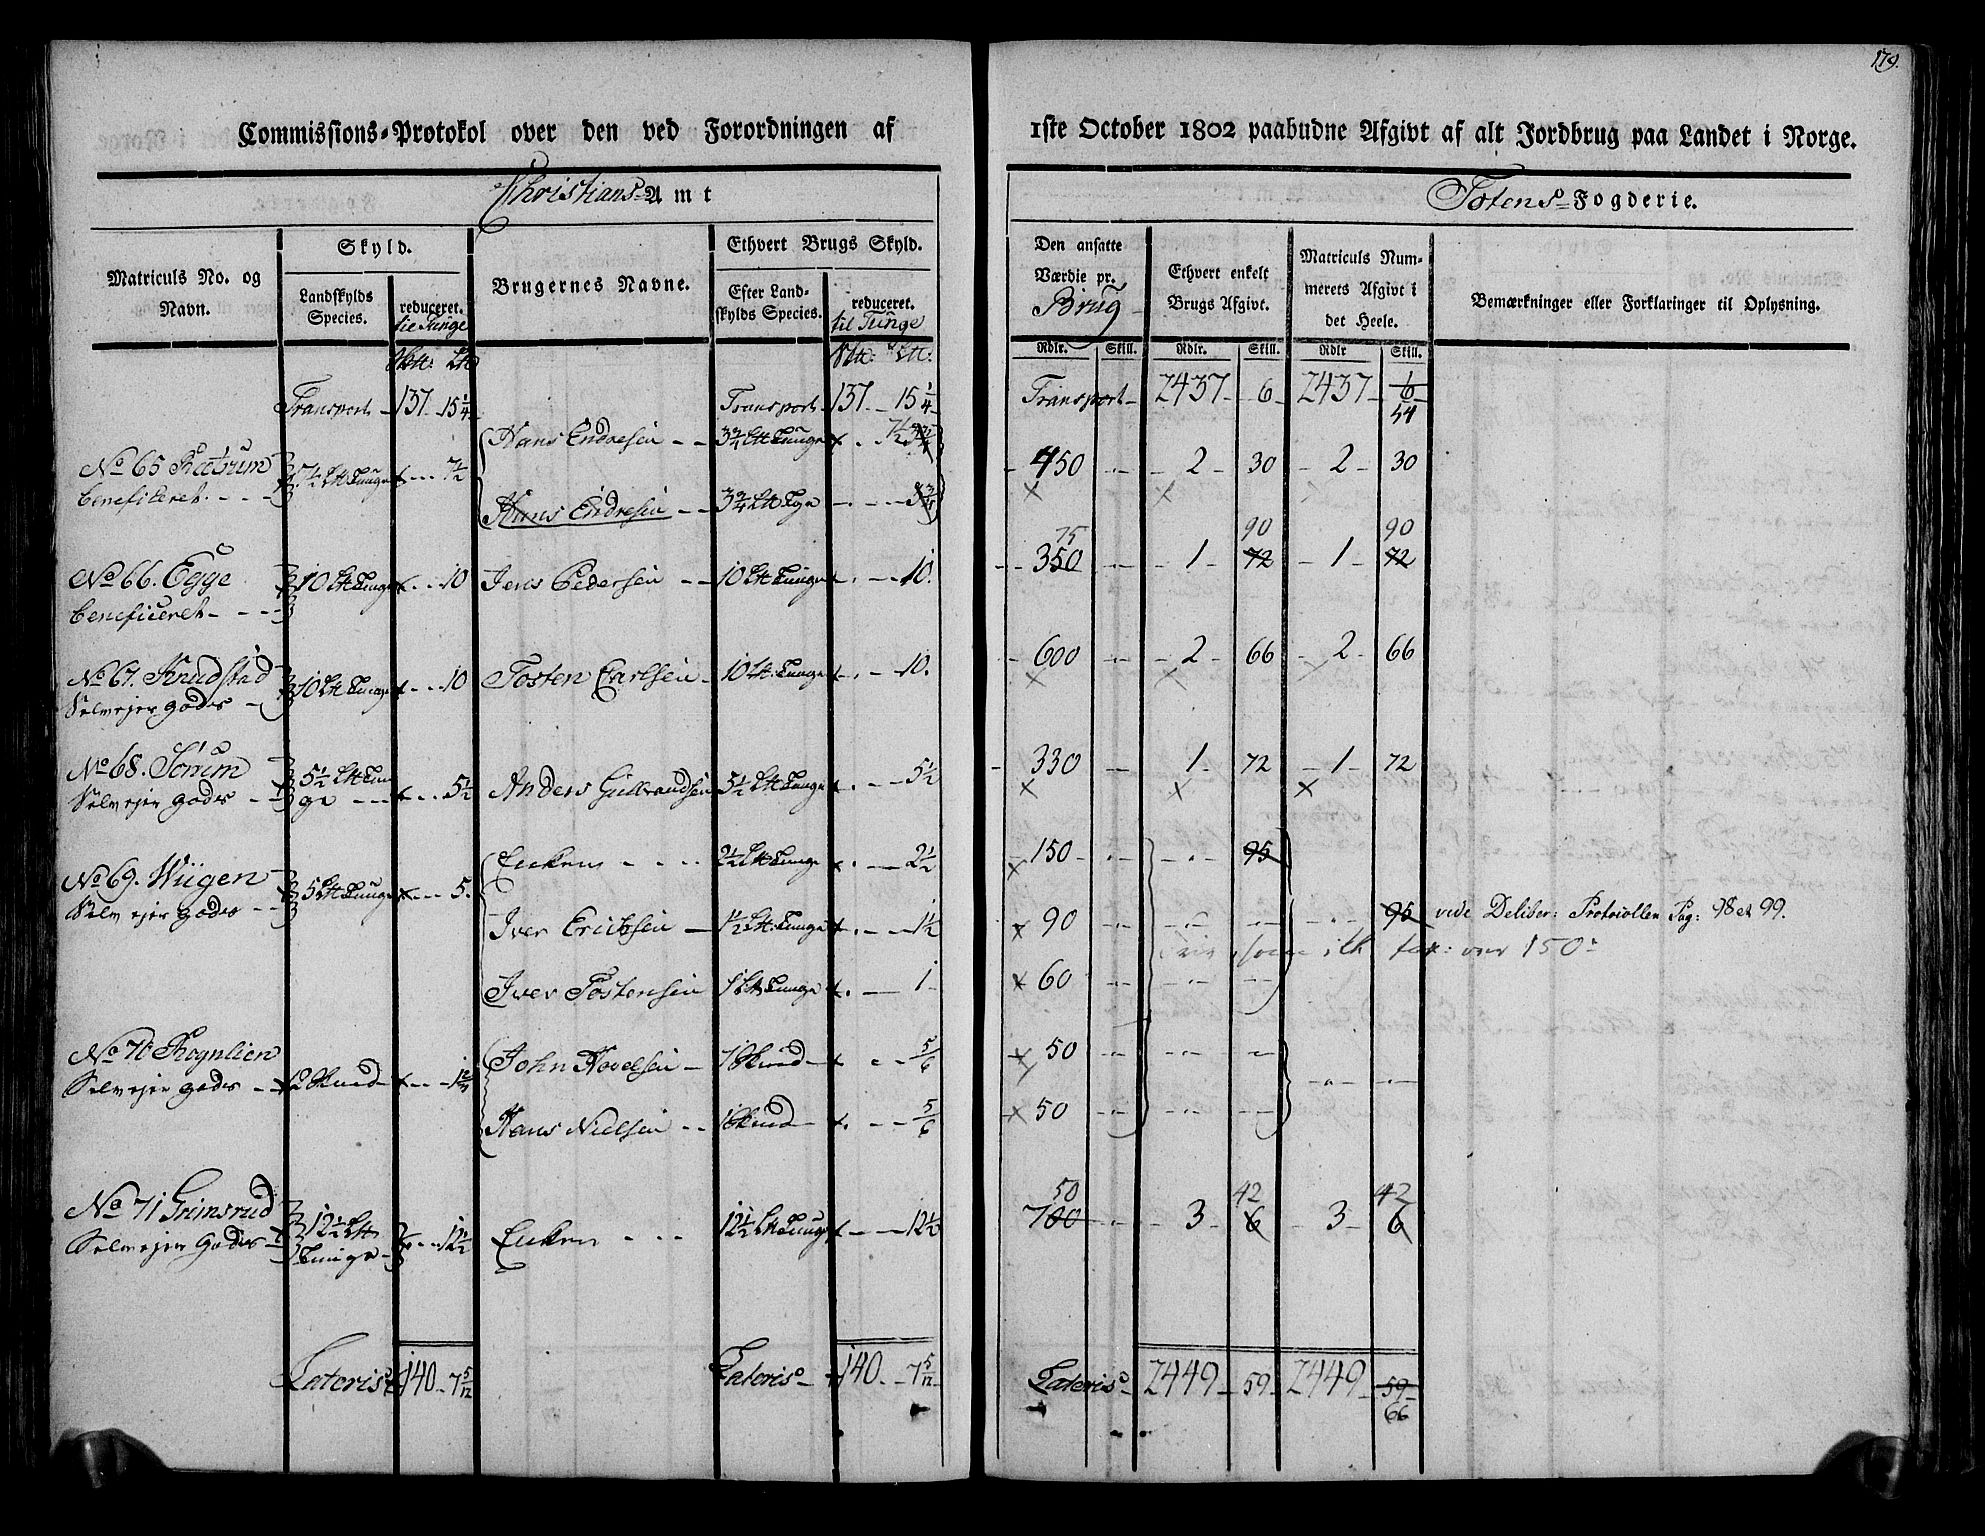 179.
Commissions-Protokol over den ved Forordningen af 1ste October 1802 paabudne Afgivt af alt Jordbrug paa Landet i Norge.
Christians Amt
Totens Fogderie.
Matriculs No. og Navn.
Skyld.
Landskylds Species.
reduceret. til Tunge
Brugernes Navne.
Ethvert Brugs Skyld.
Efter Landskylds Species.
reduceret. til Tunge
Den ansatte Værdie pr. Brug
Ethvert enkelt Brugs Afgivt.
Matriculs Nummerets Afgivt i det Heele.
Bemærkninger eller Forklaringer til Oplysning.
Rdlr. Skill. Rdlr. Skill. Rdlr Skill.
Transport 137 15 1/4 Transport 137 15 1/4 Transport 2437 6 2437 6 54
No 65 beneficeret 7 1/2 Lt Tunge 7 1/2 Hans Endresen 3 3/4 Lt Tunge 7 1/2 450 2 30 2 30
Hans Endresen 3 3/4 Lt Tge 3 3/4
No 66. Egge beneficeret 10 Lt Tunge 10 Jens Pedersen 10 Lt Tunge 10. 350 75 1 72 90 1 72 90
No 67. Knudstad Selvejer gods 10 Lt Tunge 10 Tosten Carlsen 10 Lt Tunge 10. 600 2 66 2 66
No 68. Sørum Selvejer gods 5 1/2 Lt Tunge 5 1/2 Anders Gulbrandsen 5 1/2 Lt Tunge 5 1/2 330 1 72 1 72
No 69. Wiigen Selvejer gods 5 Lt Tunge 5. Enken 2 1/2 Lt Tunge 2 1/2 150 95
Iver Erichsen 1 1/2 Lt Tunge 1 1/2 90 95 vide Deliber: Protocollen Pag: 98 et 99.
150
Iver Tostensen 1 Lt Tunge 1 60
No 70 Rognlien Selvejer gods 2 Skind 1 2/3 John Hovelsen 1 Skind 5/6 50
Hans Nielsen 1 Skind 5/6 50
No 71 Grimsrud Selvejer Gods 12 1/2 Lt Tunge 12 1/2 Enken 12 1/2 Lt Tunge 12 1/2 700 50 3 6 42 3 6 42
Lateris 140 7 5/12 Lateris 140 7 5/12 Lateris 2449 59 2449 59 66